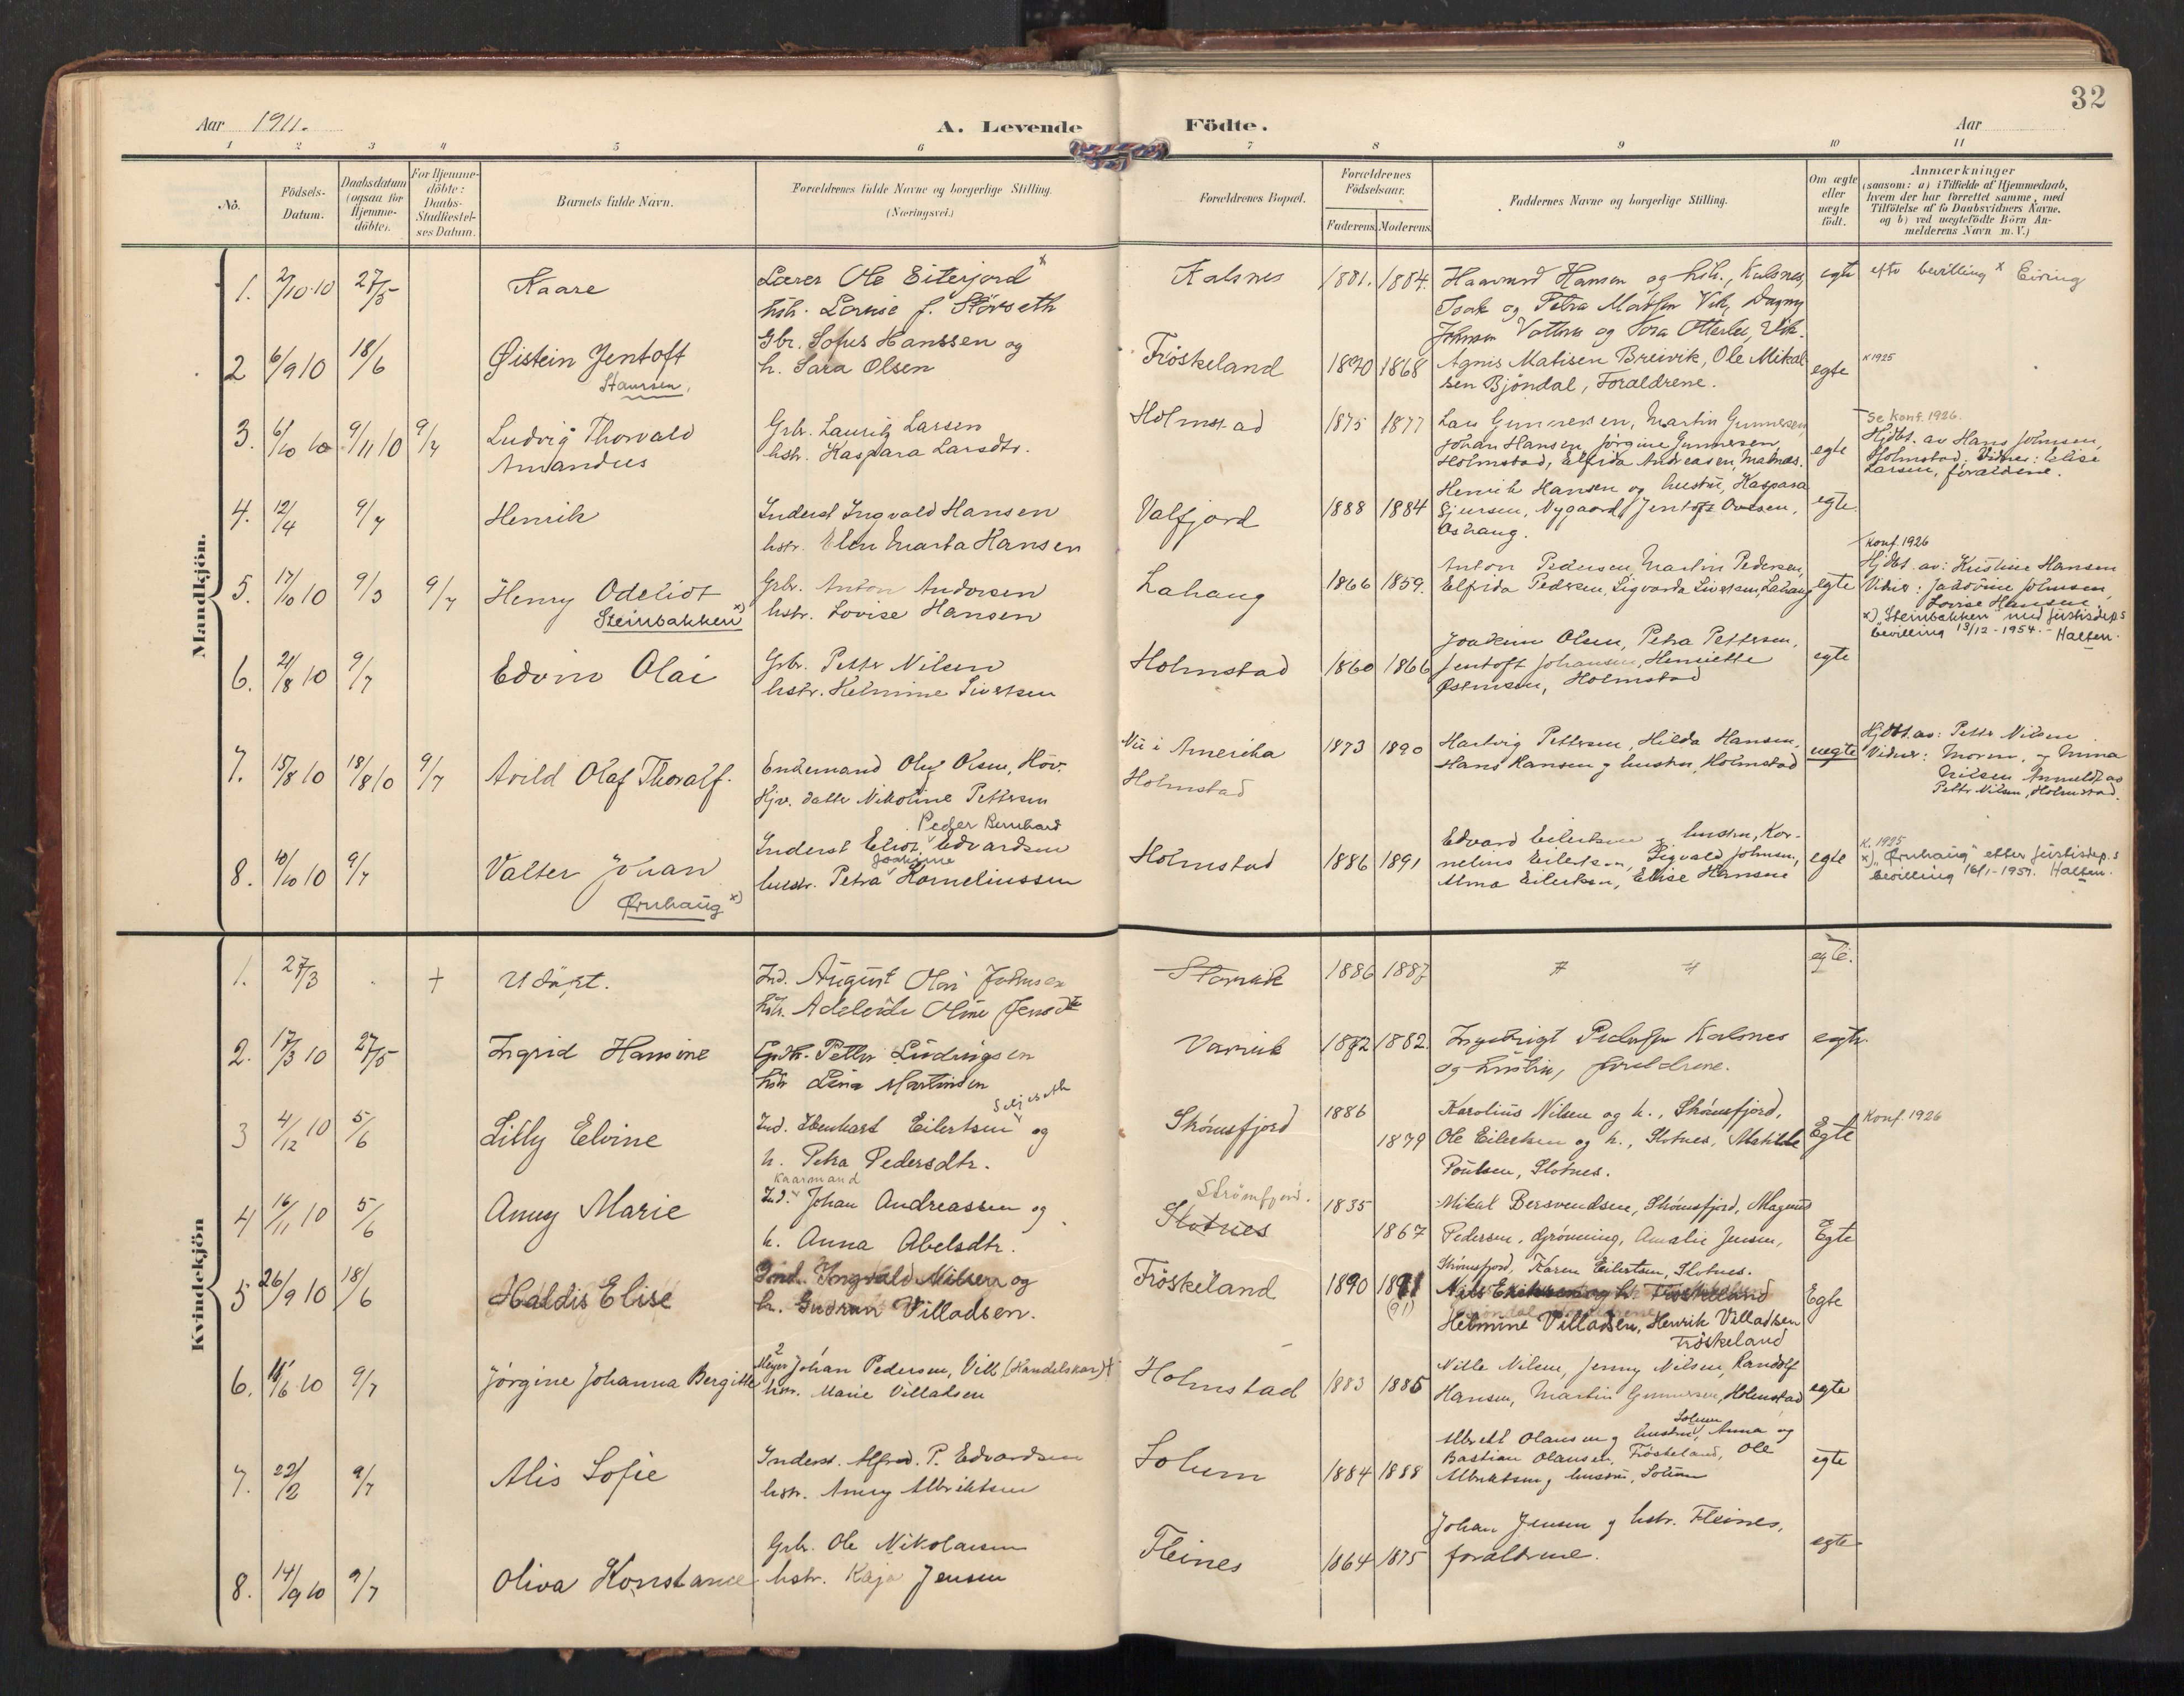 32
Aar 1911.
A. Levende Födte.
Aar
1 2 3 4 5 6 7 8 9 10 11
No.
Födsels-Datum.
Daabsdatum (ogsaa for Hjemme-döbte).
For Hjemme-döbte: Daabs-Stadfæstel-ses Datum.
Barnets fulde Navn.
Forældrenes fulde Navne og borgerlige Stilling.
(Næringsvei.)
Forældrenes Bopæl.
Forældrenes Födselsaar.
Faderens. Moderens.
Faddernes Navne og borgerlige Stilling.
Om ægte eller uægte födt.
Anmærkninger
(saasom: a) i Tilfælde af Hjemmedaab,
hvem der har forrettet samme, med
Tilföielse af to Daabsvidners Navne,
og b) ved uægtefödte Börn An-
melderens Navn m. V.)
Mandkjön.
1. 2/10 10 27/5 Kaare
Lærer Ole Eiterjord x
hstr. Lovise f. Störseth
Kalsnes 1881. 1884.
Haavard Hansen og hstr., Kalsnes,
Isak og Petra Madsen Vik, Dagny
Johnsen og Tora Otterlei, Vik.
egte
efter bevilling x Eiring
2 6/9 10 18/6 Øistein Jentoft
Staursen,
Gbr. Sofus Hanssen og
h. Sara Olsen
Fröskeland 1870 1868
Agnis Matisen Breivik, Ole Mikal
sen Bjöndal, Foraldrene.
egte
K 1925
3. 6/10 10 9/11 10 9/7 Ludvig Thorvald
Amandus
Grbr. Lauritz Larsen
hstr. Kaspara Larsdtr.
Holmstad 1875 1877
Lars Gunnersen, Martin Gunnersen,
Johan Hansen, Jörgine Gunnersen,
Holmstad, Elfrida Andreasen, Malnes.
egte
Se konf. 1926.
Hjdbt. av Hans Johnsen,
Holmstad. Vidner: Elise
Larsen, foraldrene.
4. 12/4 9/7 Henrik
Inderst Ingvald Hansen
hstr. Elen Marta Hansen
Valfjord 1888 1884
Henrik Hansen og hustru, Kaspara
Sjursen, Nygaard, Jentoft Ovesen,
Oshaug.
egte.
5. 17/10 10 9/3 9/7 Henry Odeliot
Steinbakken x)
Grbr. Anton Andorsen
hstr. Lovise Hansen
Lahaug 1866 1859.
Anton Pedersen, Martin Pedersen,
Elfrida Pedersen, Sigvarda Sivertsen, Lahaug
egte
Konf. 1926
Hjdbt. av: Kristine Hansen
Vidner: Jakobine Johnsen,
Lovise Hansen.
x) "Steinbakken" med justisdep.s
bevilling 13/12-1954. - Halsen.
6. 21/8 10 9/7 Edvin Olai
Grbr. Petter Nilsen
hstr. Helmine Sivertsen
Holmstad 1860 1866
Joakim Olsen, Petra Pettersen,
Jentoft Johansen, Henriette
Østensen, Holmstad
egte
7. 15/8 10 18/8 10 9/7 Arild Olaf Thoralf.
Enkemand Oluf Olsen, Höv.
Hjv. datter Nikoline Pettersen
Nu i Amerika
Holmstad
1873 1890
Hartvig Pettersen, Hilda Hansen,
Hans Hansen og hustru, Holmstad
uegte
Hjdbt. av: Petter Nilsen
Vidner: Moren, og Mina
Nilsen. Anmeldt av
Petter Nilsen, Holmstad.
8. 10/10 10 9/7 Valter Johan
Ørnhaug x)
Peder Bernhard
Inderst Eliot Edvardsen
Joakime
hustr. Petra Korneliussen
Holmstad 1886 1891
Edvard Eilertsen og hustru, Kor-
nelius Eilertsen, Sigvald Johnsen,
Alma Eilertsen, Elise Hansen
egte
K. 1925
x) "Ørnhaug" etter justisdep.s
bevilling 16/1-1957. Halsen.
Kvindekjön
1. 27/3 + Udöpt.
Ind. August Olai Johnsen
hstr. Adeleide Oline Jensdtr
1886 1887
egte.
2. 17/3 10 27/5 Ingrid Hansine
Grdbr. Petter Ludvigsen
hstr Lina Martinsen
Varvik 1882 1882.
Ingebrigt Pedersen Kalsnes
og hustru, foreldrene.
egte.
3 4/12 10 5/6 Lilly Elvine
Seljeseth
Ind. Ebenhart Eilertsen og
h. Petra Pedersdtr.
Skömsfjord 1886 1879
Karolius Nilsen og h., Skömsfjord,
Ole Eilertsen og h., Slotnes, Matilde
Poulsen, Slotnes.
Egte
Konf. 1926
4 16/11 10 5/6 Anny Marie
Kaarmand
Ind. Johan Andreassen og
h. Anna Abelsdtr.
Strömfjord.
Slotnes
1835 1867
Mikal Bersvendsen, Skömsfjord, Magnus
Pedersen, Grönning, Amalie Jensen,
Skömsfjord, Karen Eilertsen, Slotnes.
Egte
5 26/9 10 18/6 Haldis Elise
Ind. Ingvald Nilsen og
h. Gudrun Villadsen.
Fröskeland 1890 1891
(91)
Helmine Villadsen, Henrik Villadsen
Fröskeland
Egte
6. 18/6 10 9/7 Jörgine Johanna Bergitte
Meyer Johan Pedersen, Vill (Handelskar) +
hstr. Marie Villadsen
Holmstad 1883 1885
Nille Nilsen, Jenny Nilsen, Randolf
Hansen, Martin Gunnersen, Holmstad
egte
7. 22/2 9/7 Alis Sofie
Inderst. Alfred. P. Edvardsen
hstr. Anny Albriktsen
Solum 1884 1888
Solum
Albrekt Olausen og hustru, Anna og
Bastian Olausen, Fröskeland, Ole
Albriktsen og hustru, Solum
egte
8. 14/9 10 9/7 Oliva Konstance
Grbr. Ole Nikolaisen
hstr. Kaja Jensen
Fleines 1864 1875
Johan Jensen og hstr. Fleines,
foraldrene.
egte